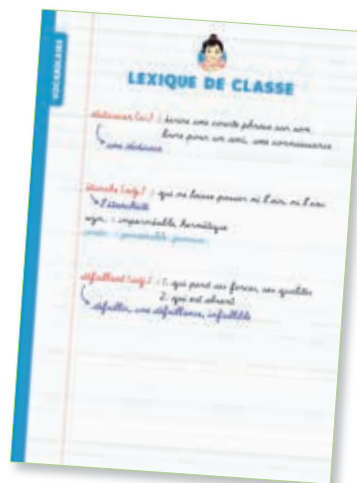 VOCABULAIRE
LEXIQUE DE CLASSE
dédicacer (v.) : écrire une courte phrase sur son
livre pour un ami, une connaissance
une dédicace
étanche (adj.) : qui ne laisse passer ni l'air, ni l'eau
l'étanchéité
syn. : imperméable, hermétique
défaillant (adj.) : 1. qui perd ses forces, ses qualités
2. qui est absent
défaillir, une défaillance, infaillible